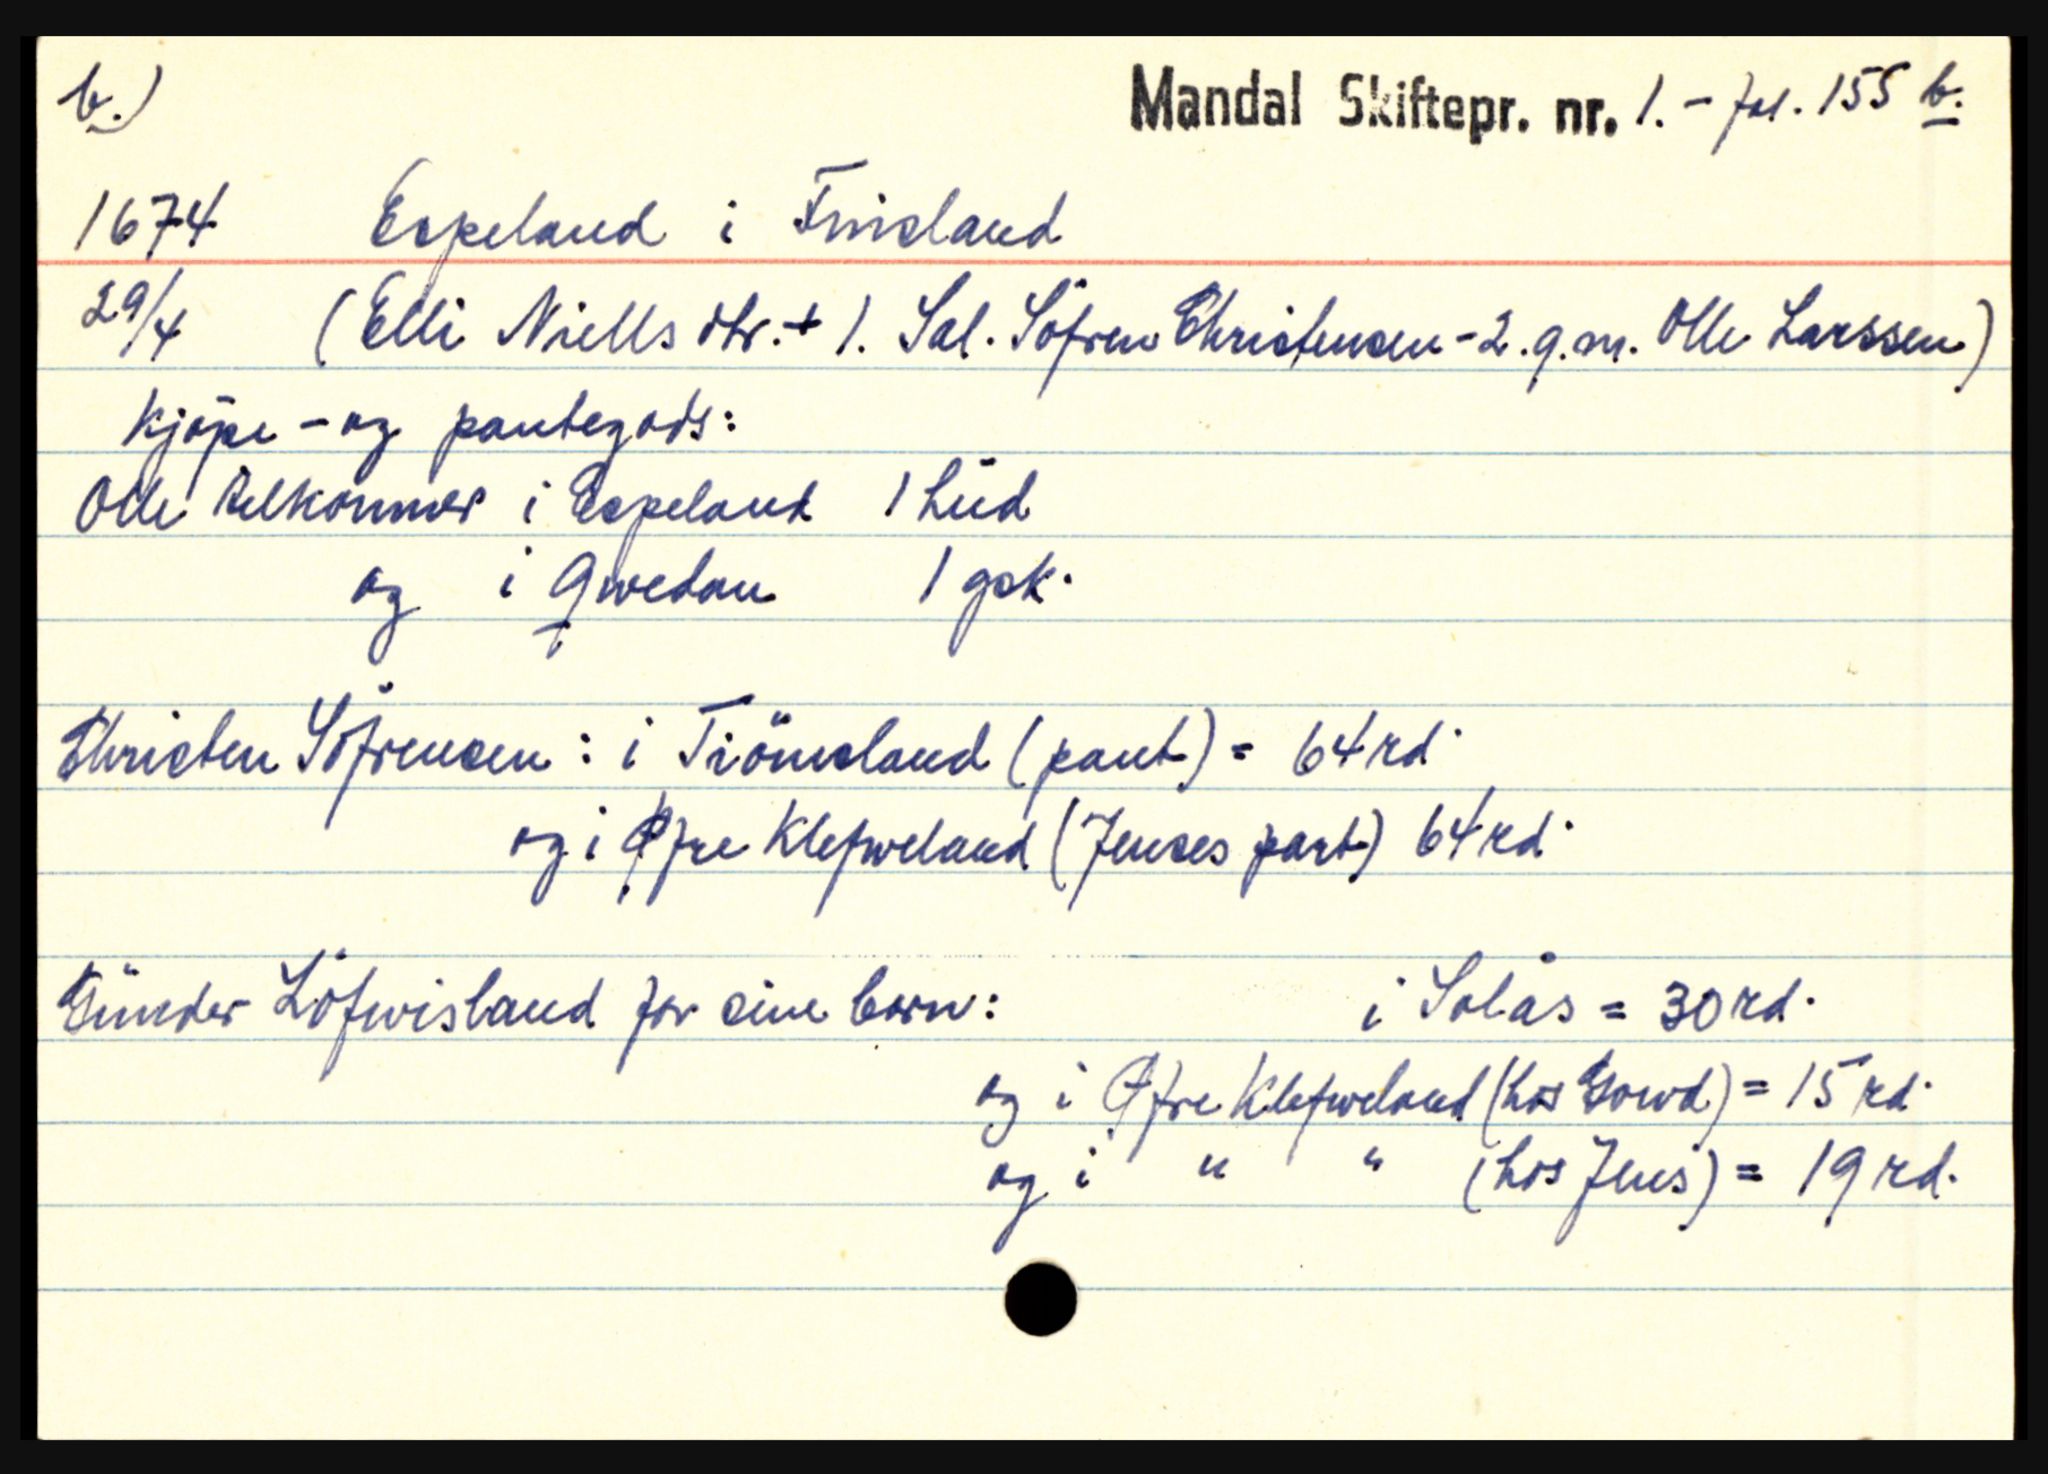 b.) Mandal Skiftepr. nr. 1. - fol. 155 b.
1674 Espeland i Finsland
29/4 (Elli Niells dtr. + 1. Sal. Söfren Christensen - 2. g.m. Olle Larssen)
Kjöpe - og pantegods:
Olle tilkommer i Espeland 1 hüd
og i Qwedan 1 gsk.
Christen Söfrensen: i Triömsland (pant) = 64 rd.
og i Øfre Klefweland (Jenses part) 64 rd.
Günder Löfwisland for sine born: i Solås = 30 rd.
og i Øfre Klefweland (hos Gowd) = 15 rd.
og i " " (hos Jens) = 19 rd.